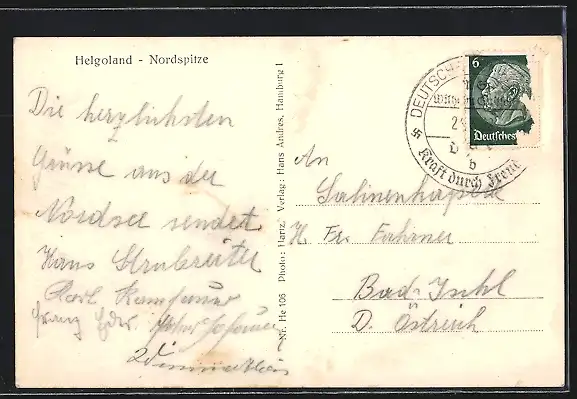 Helgoland - Nordspitze
Die herzlichsten
Grüsse aus der
Nordsee sendet
Hans
Karl
Franz Eder
Nr. He 106 Photo: Hartz Verlag: Hans Andres, Hamburg I
DEUTSCHE
Wilhelm
b
Kraft durch Freude
6
Deutsches
An
Salinenkapelle
H. Fr. Fahrner
Bad-Ischl
D. Östreich